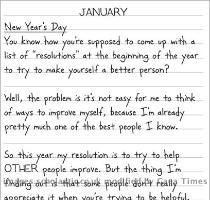 JANUARY
New Year's Day
You know how you're supposed to come up with a
list of "resolutions" at the beginning of the year
to try to make yourself a better person?
Well, the problem is it's not easy for me to think
of ways to improve myself, because I'm already
pretty much one of the best people I know.
So this year my resolution is to try to help
OTHER people improve. But the thing I'm
finding out is that some people don't really
appreciate it when you're trying to be helpful.
Times